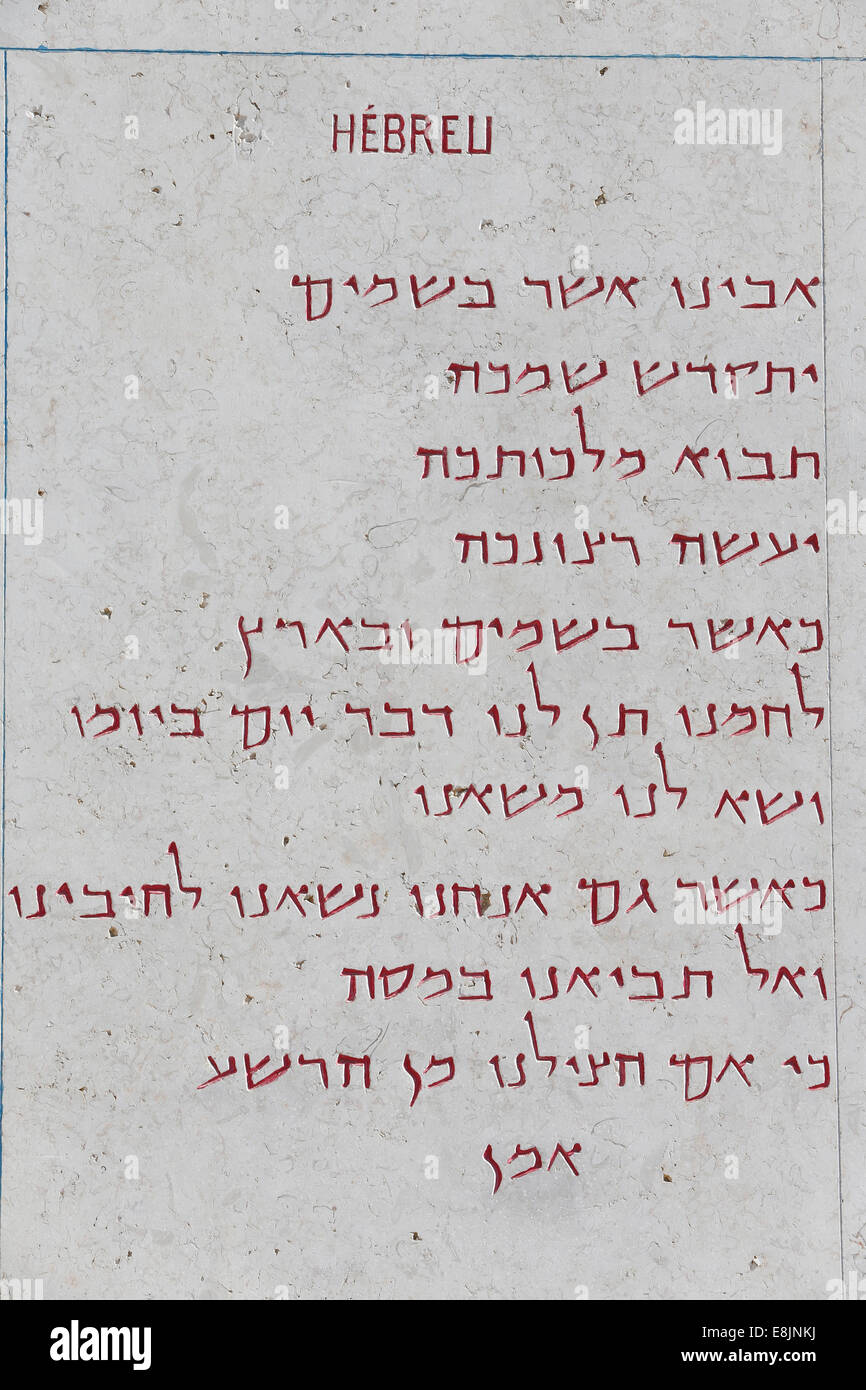 HÉBREU
אבינו אשר בשמים
יתקדש שמכה
תבוא מלכותכה
יעשה רצונכה
כאשר בשמים ובארץ
לחמנו תן לנו דבר יום ביומו
ושא לנו משאנו
כאשר גם אנחנו נשאנו לחיבינו
ואל תביאנו במסה
כי אם הצילנו מן הרשע
אמן
alamy
alamy
Image ID: E8JNKJ
www.alamy.com